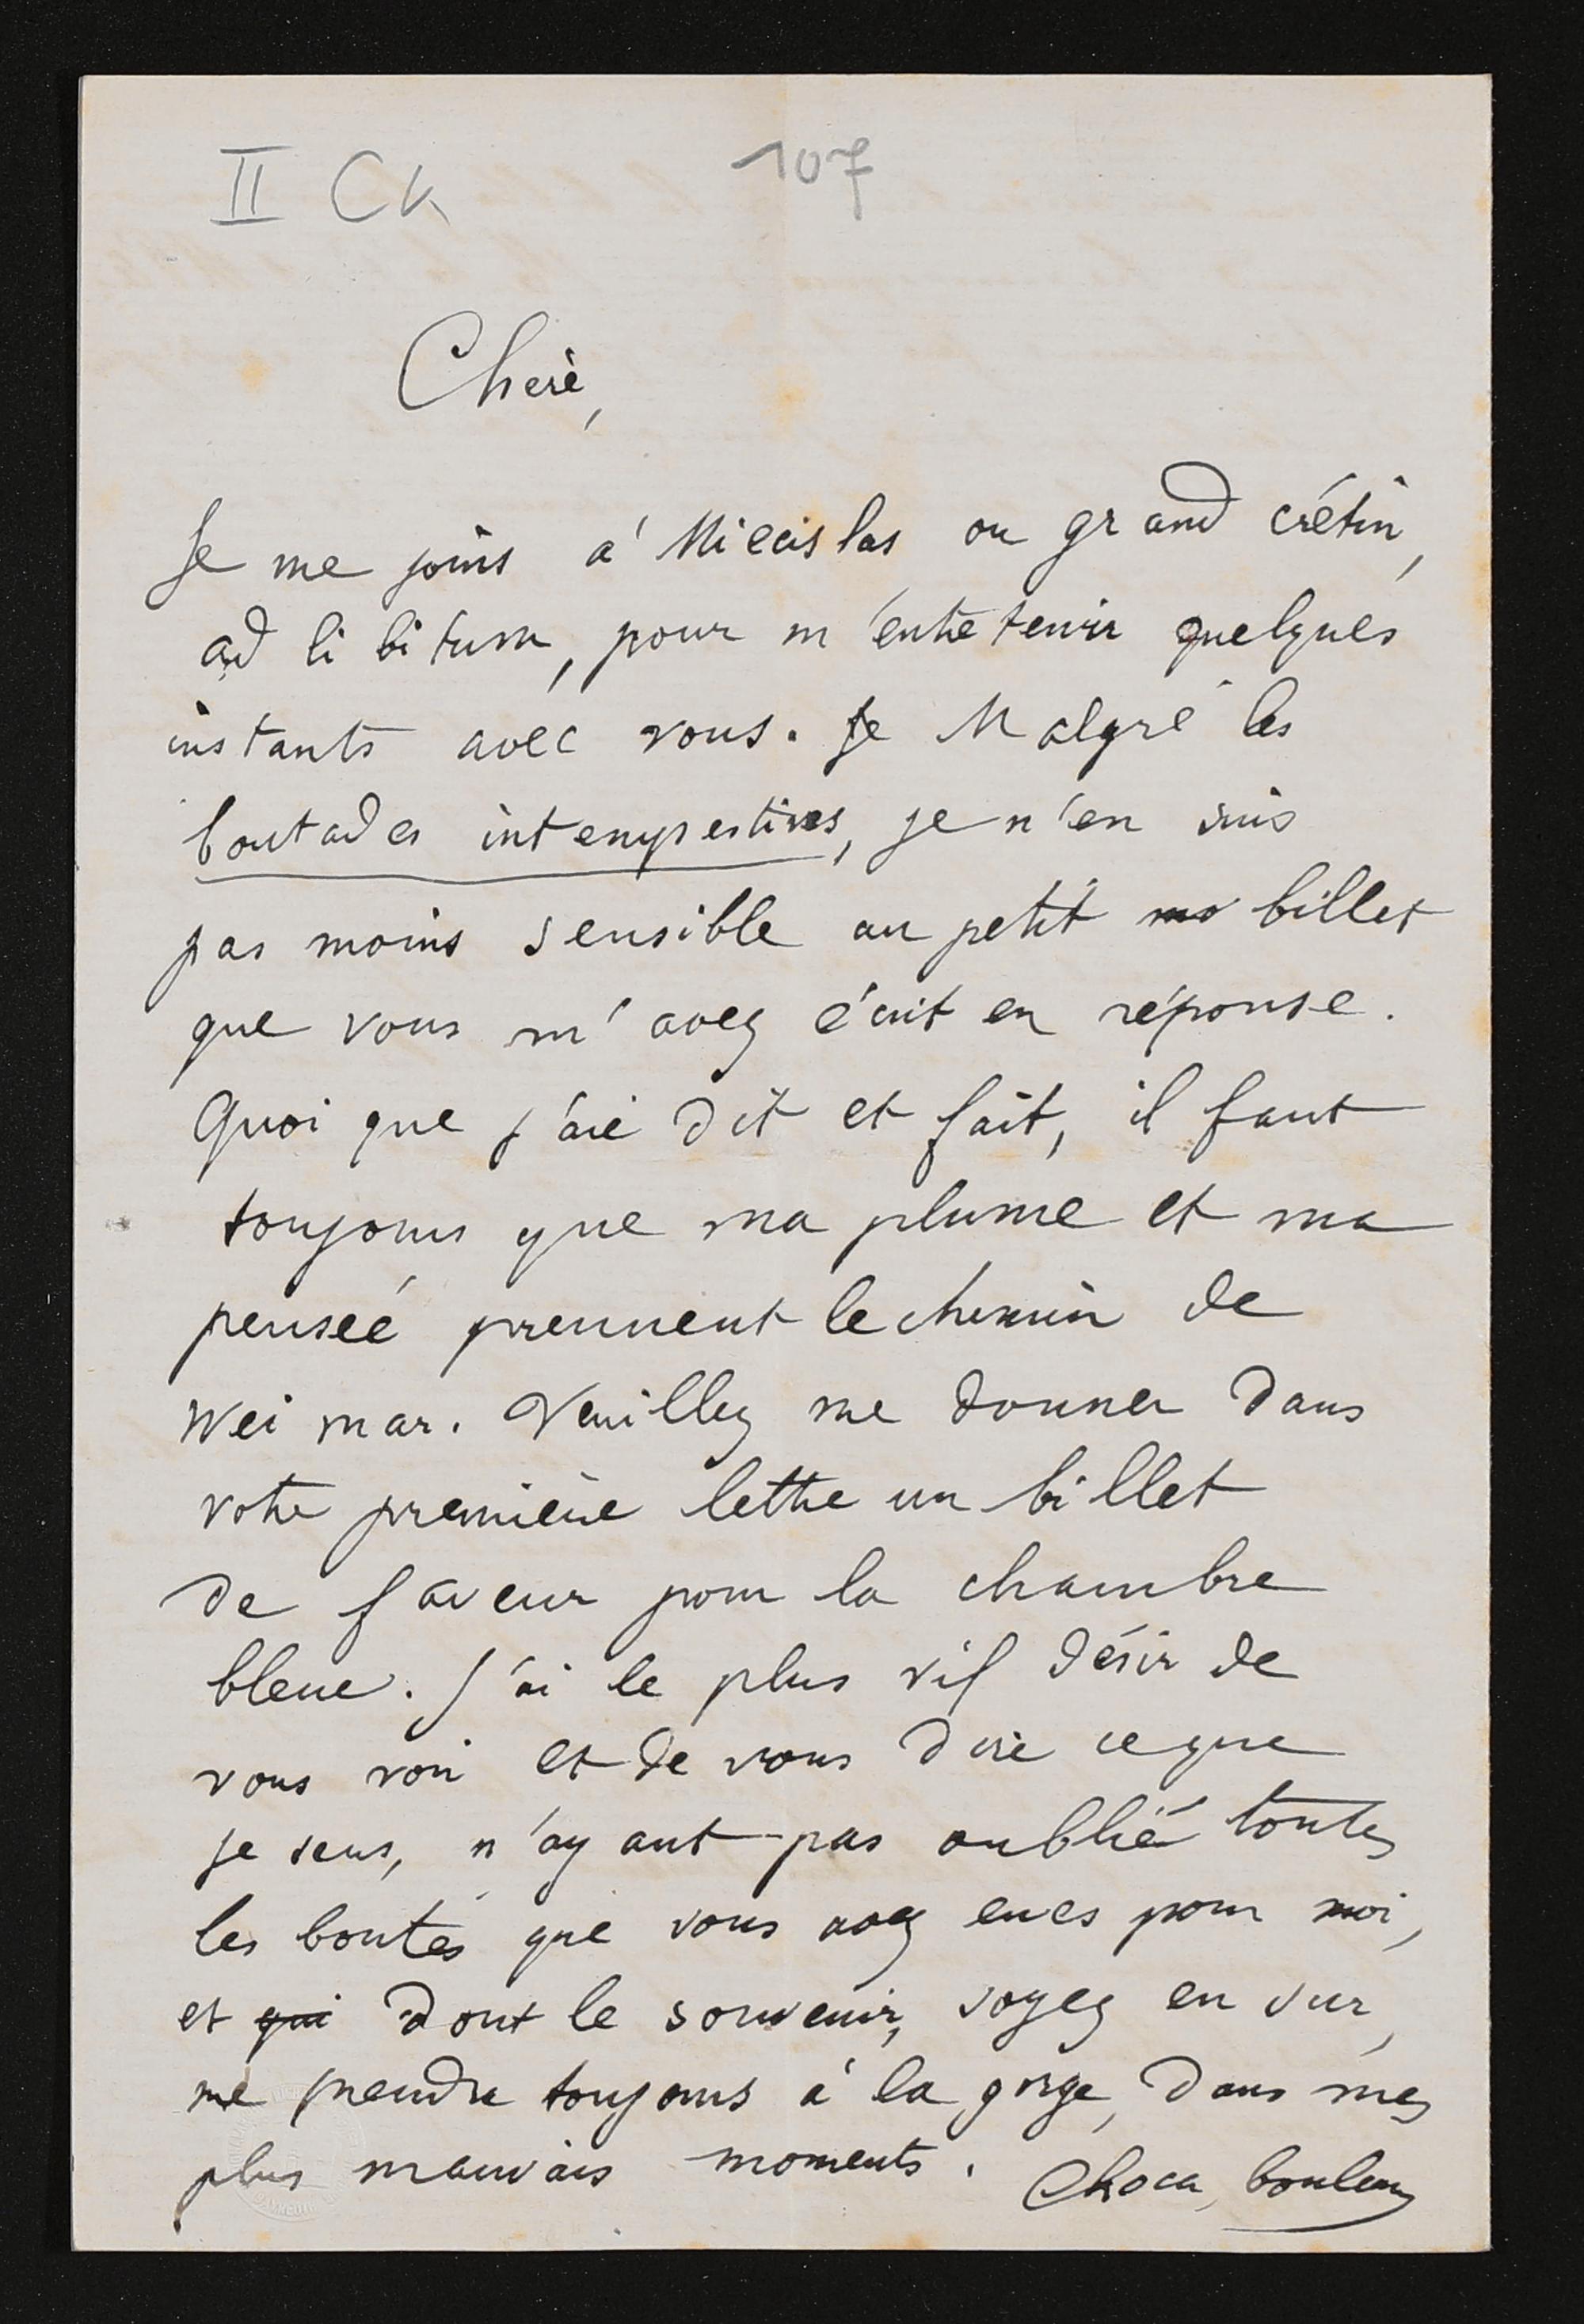 II CK 107
Cheré,
Je me joins á Miecislas ou grand crétin,
ad libitum, pour m'entretenir quelques
instants avec vous. Je Malgré les
boutades intempestives, je n'en suis
pas moins sensible au petit mo billet
que vous m'avez écrit en réponse.
Quoi que j'aie dit et fait, il faut
toujours que ma plume et ma
penseé prennent le chemin de
Weimar. Veuillez me donner dans
votre première lettre un billet
de faveur pour la chambre
bleue. J'ai le plus vif désir de
vous voir et de vous dire ce que
je sens, n'ayant pas oublié toutes
les bontés que vous avez eues pour moi,
et qui dont le souvenir, soyez en sur,
me prendra toujours á la gorge, dans mes
plus mauvais moments. Choca